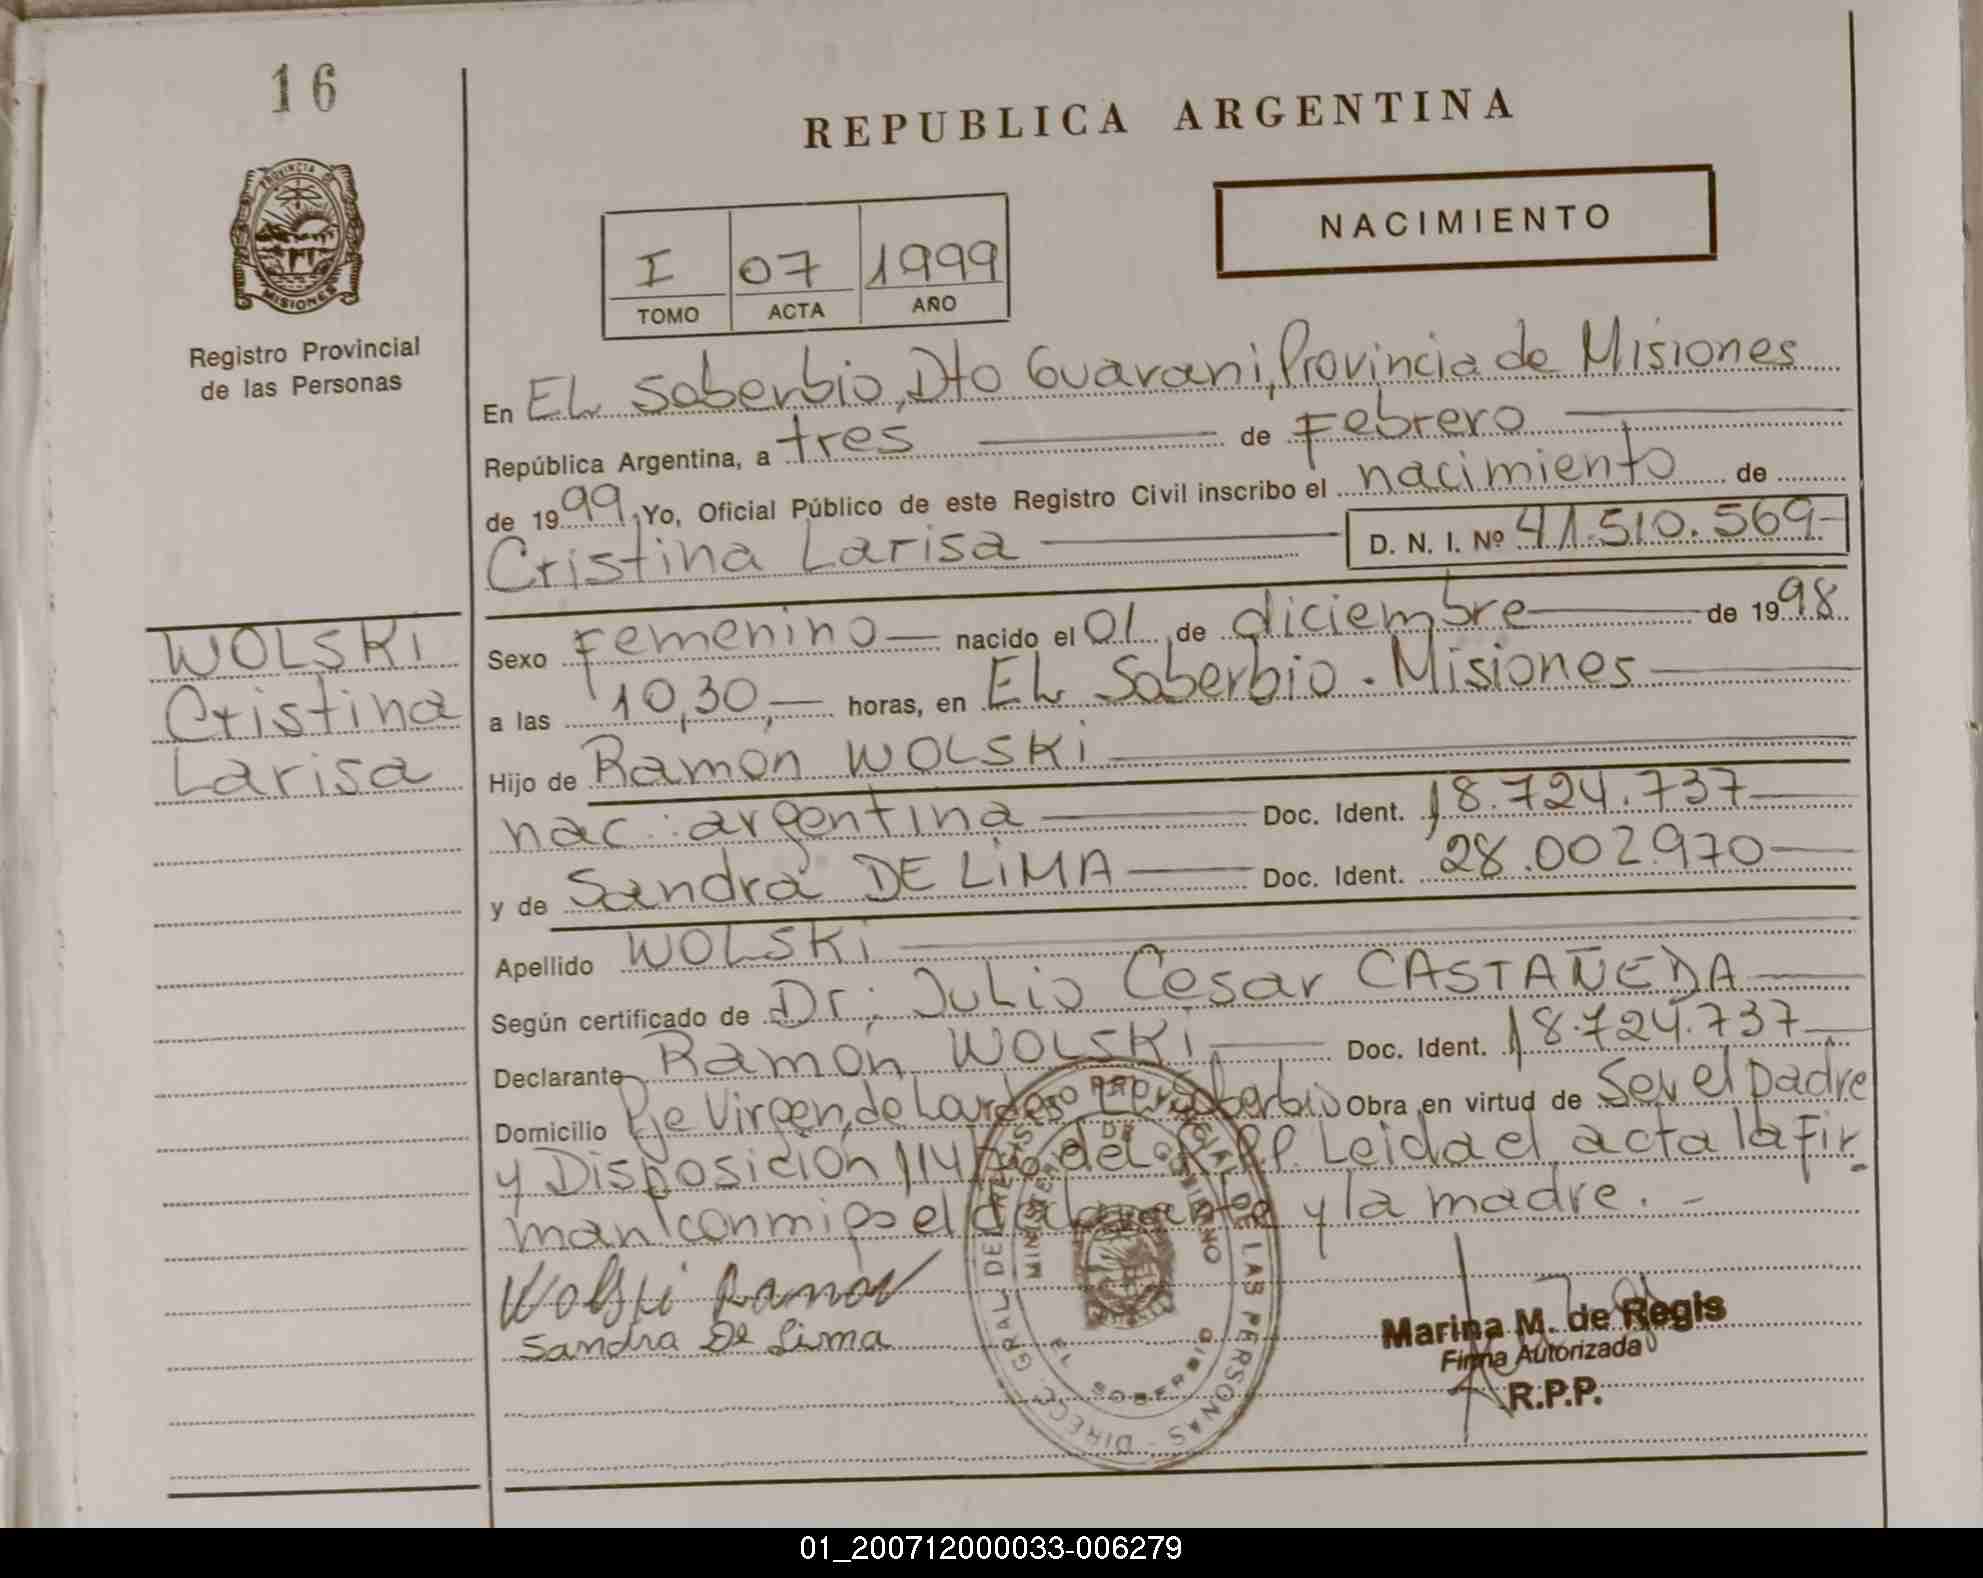 16
REPUBLICA ARGENTINA
NACIMIENTO
PROVINCIA DE
MISIONES
Registro Provincial
de las Personas
I 07 1999
TOMO ACTA AÑO
En EL Soberbio, Dto Guarani, Provincia de Misiones
República Argentina, a tres de Febrero
de 1999, Yo, Oficial Público de este Registro Civil inscribo el nacimiento de
Cristina Larisa D. N. I. Nº 41.510.569-
WOLSKI
Cristina
Larisa
Sexo Femenino nacido el 01 de diciembre de 1998
a las 10,30, horas, en EL Soberbio. Misiones
Hijo de Ramon WOLSKI
nac. argentina Doc. Ident. 18.724.737
y de Sandra DE LIMA Doc. Ident. 28.002.970
Apellido WOLSKI
Según certificado de Dr. Julio Cesar CASTAÑEDA
Declarante Ramón WOLSKI Doc. Ident. 18.724.737
Domicilio Pje Virgen de Lourdes EL Soberbio Obra en virtud de Ser el padre
y Disposición 114 del R.P.P. Leida el acta la fir
man conmigo el declarante y la madre. -
Wolski Ramon
Sandra De Lima
DIRECC. GRAL. DE LAS PERSONAS
MINISTERIO DE GOBIERNO
EL SOBERBIO
Marina M. de Regis
Firma Autorizada
R.P.P.
01_200712000033-006279